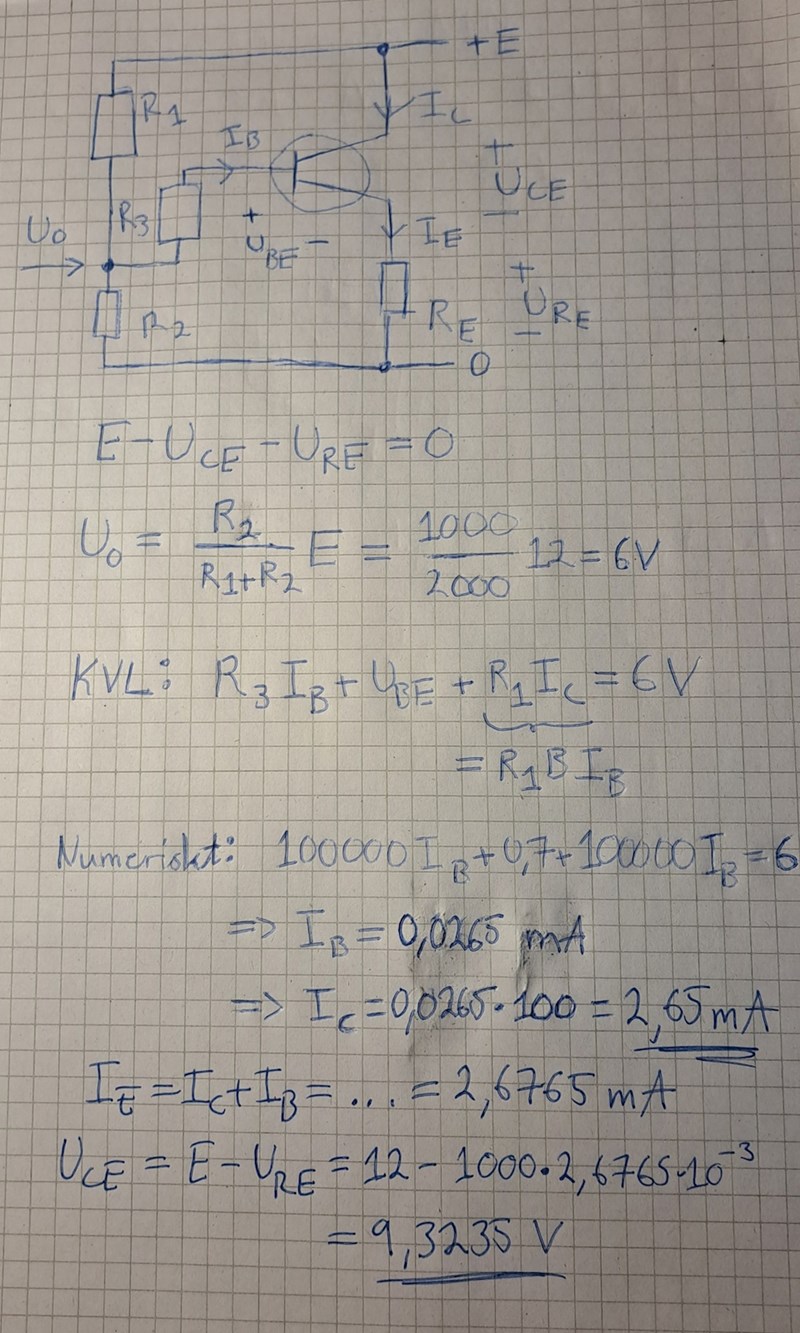 +E
R1
IC
IB
+
UCE
−
R3
U0
+
UBE −
IE
+
URE
−
RE
R2
0
E − UCE − URE = 0
U0 = R2/(R1+R2) E = 1000/2000 12 = 6V
KVL: R3 IB + UBE + R1 IC = 6V
= R1 B IB
Numeriskt: 100000 IB + 0,7 + 100000 IB = 6
=> IB = 0,0265 mA
=> IC = 0,0265·100 = 2,65 mA
IE = IC + IB = .... = 2,6765 mA
UCE = E − URE = 12 − 1000·2,6765·10^-3
= 9,3235 V